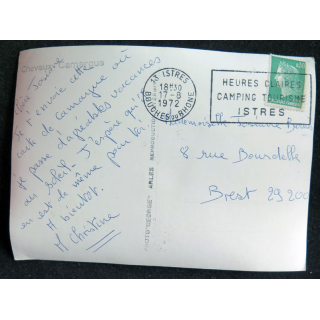 Chevaux - Camargue
Chère
Je t'envoie cette
carte de Camargue où
je passe d'agréables vacances
au soleil - J'espère qu'il
en est de même pour toi
A bientôt.
Christine
13 ISTRES
18H30
17-8
1972
BOUCHES DU RHÔNE
HEURES CLAIRES
CAMPING TOURISME
ISTRES
Mademoiselle
8 rue Bourdelle
Brest 29200
ARLES REPRODUCTION